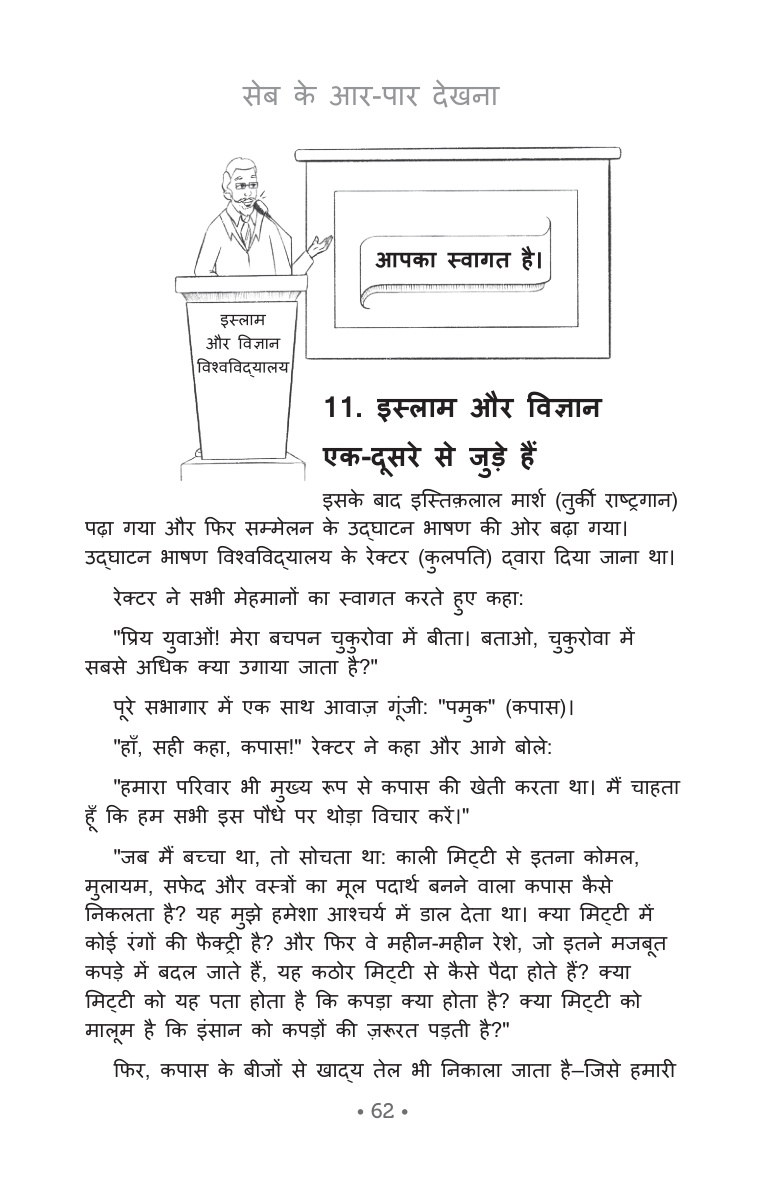 सेब के आर-पार देखना
आपका स्वागत है।
इस्लाम
और विज्ञान
विश्वविद्यालय
11. इस्लाम और विज्ञान
एक-दूसरे से जुड़े हैं
इसके बाद इस्तिक़लाल मार्श (तुर्की राष्ट्रगान)
पढ़ा गया और फिर सम्मेलन के उद्घाटन भाषण की ओर बढ़ा गया।
उद्घाटन भाषण विश्वविद्यालय के रेक्टर (कुलपति) द्वारा दिया जाना था।
रेक्टर ने सभी मेहमानों का स्वागत करते हुए कहा:
"प्रिय युवाओं! मेरा बचपन चुकुरोवा में बीता। बताओ, चुकुरोवा में
सबसे अधिक क्या उगाया जाता है?"
पूरे सभागार में एक साथ आवाज़ गूंजी: "पमुक" (कपास)।
"हाँ, सही कहा, कपास!" रेक्टर ने कहा और आगे बोले:
"हमारा परिवार भी मुख्य रूप से कपास की खेती करता था। मैं चाहता
हूँ कि हम सभी इस पौधे पर थोड़ा विचार करें।"
"जब मैं बच्चा था, तो सोचता था: काली मिट्टी से इतना कोमल,
मुलायम, सफेद और वस्त्रों का मूल पदार्थ बनने वाला कपास कैसे
निकलता है? यह मुझे हमेशा आश्चर्य में डाल देता था। क्या मिट्टी में
कोई रंगों की फैक्ट्री है? और फिर वे महीन-महीन रेशे, जो इतने मजबूत
कपड़े में बदल जाते हैं, यह कठोर मिट्टी से कैसे पैदा होते हैं? क्या
मिट्टी को यह पता होता है कि कपड़ा क्या होता है? क्या मिट्टी को
मालूम है कि इंसान को कपड़ों की ज़रूरत पड़ती है?"
फिर, कपास के बीजों से खाद्य तेल भी निकाला जाता है—जिसे हमारी
• 62 •